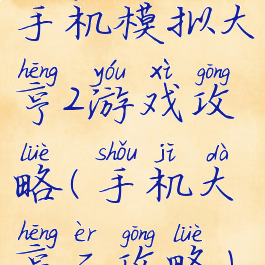 手机模拟大
hēng yóu xì gōng
亨2游戏攻
lüè shǒu jī dà
略(手机大
hēng èr gōng lüè
亨2攻略)